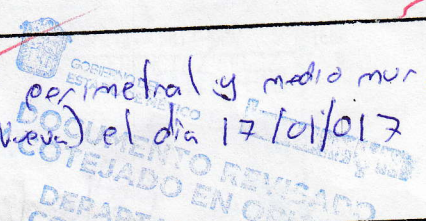 GOBIERNO DEL
ESTADO DE MÉXICO
perimetral y medio mur
el dia 17/01/017
DOCUMENTO REVISADO
COTEJADO EN